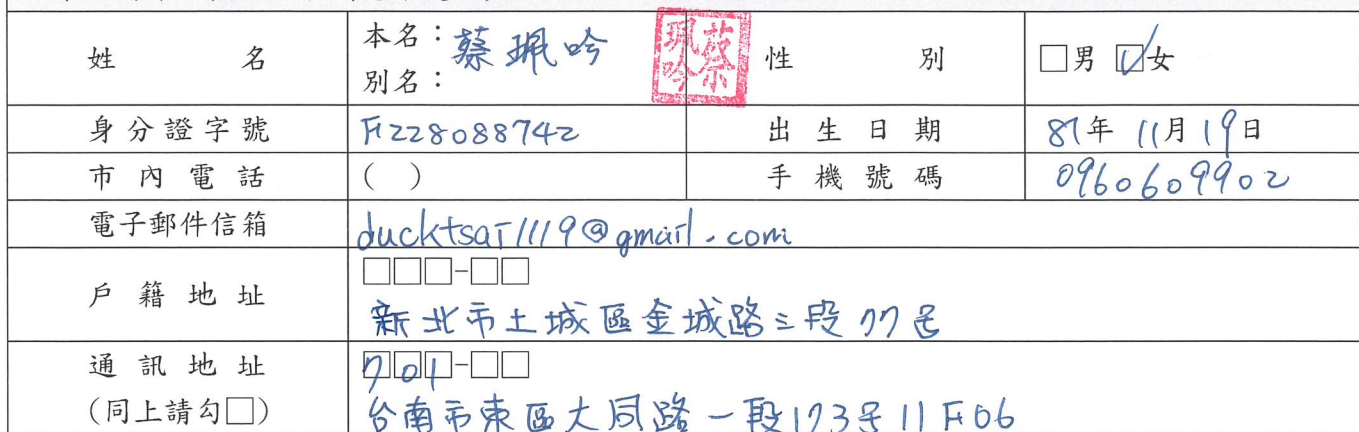 姓名 本名：蔡珮吟 蔡珮吟 性別 □男 ☑女
別名：
身分證字號 F228088742 出生日期 87年 11月 19日
市內電話 ( ) 手機號碼 0960609902
電子郵件信箱 ducktsai1119@gmail.com
戶籍地址 □□□-□□
新北市土城區金城路三段77号
通訊地址 701-□□
(同上請勾□) 台南市東區大同路一段173号11F06